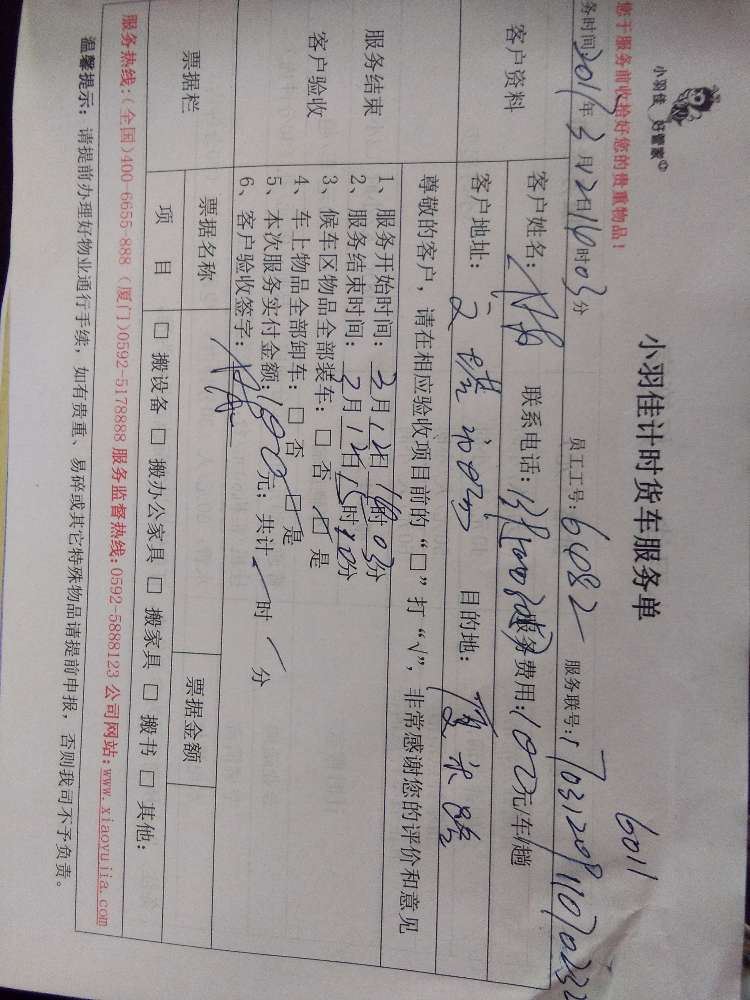 您于服务前收拾好您的贵重物品！
小羽佳 好管家
小羽佳计时货车服务单
6011
务时间：2017年3月12日14时03分 员工工号：6082 服务联号：1703120911070232
客户资料
客户姓名： 联系电话： 服务费用：100元/车/趟
客户地址： 目的地：厦禾路
服务结束
客户验收
尊敬的客户，请在相应验收项目前的“□”打“√”，非常感谢您的评价和意见
1、服务开始时间：3月12日14时03分
2、服务结束时间：3月12日15时20分
3、候车区物品全部装车：□ 否 □ 是
4、车上物品全部卸车：□ 否 □ 是
5、本次服务实付金额：100元；共计 时 分
6、客户验收签字：
票据栏
票据名称 票据金额
项 目 □ 搬设备 □ 搬办公家具 □ 搬家具 □ 搬书 □ 其他：
服务热线：(全国)400-6655-888 (厦门)0592-5178888 服务监督热线：0592-5888123 公司网站：www.xiaoyujia.com
温馨提示：请提前办理好物业通行手续，如有贵重、易碎或其它特殊物品请提前申报，否则我司不予负责。